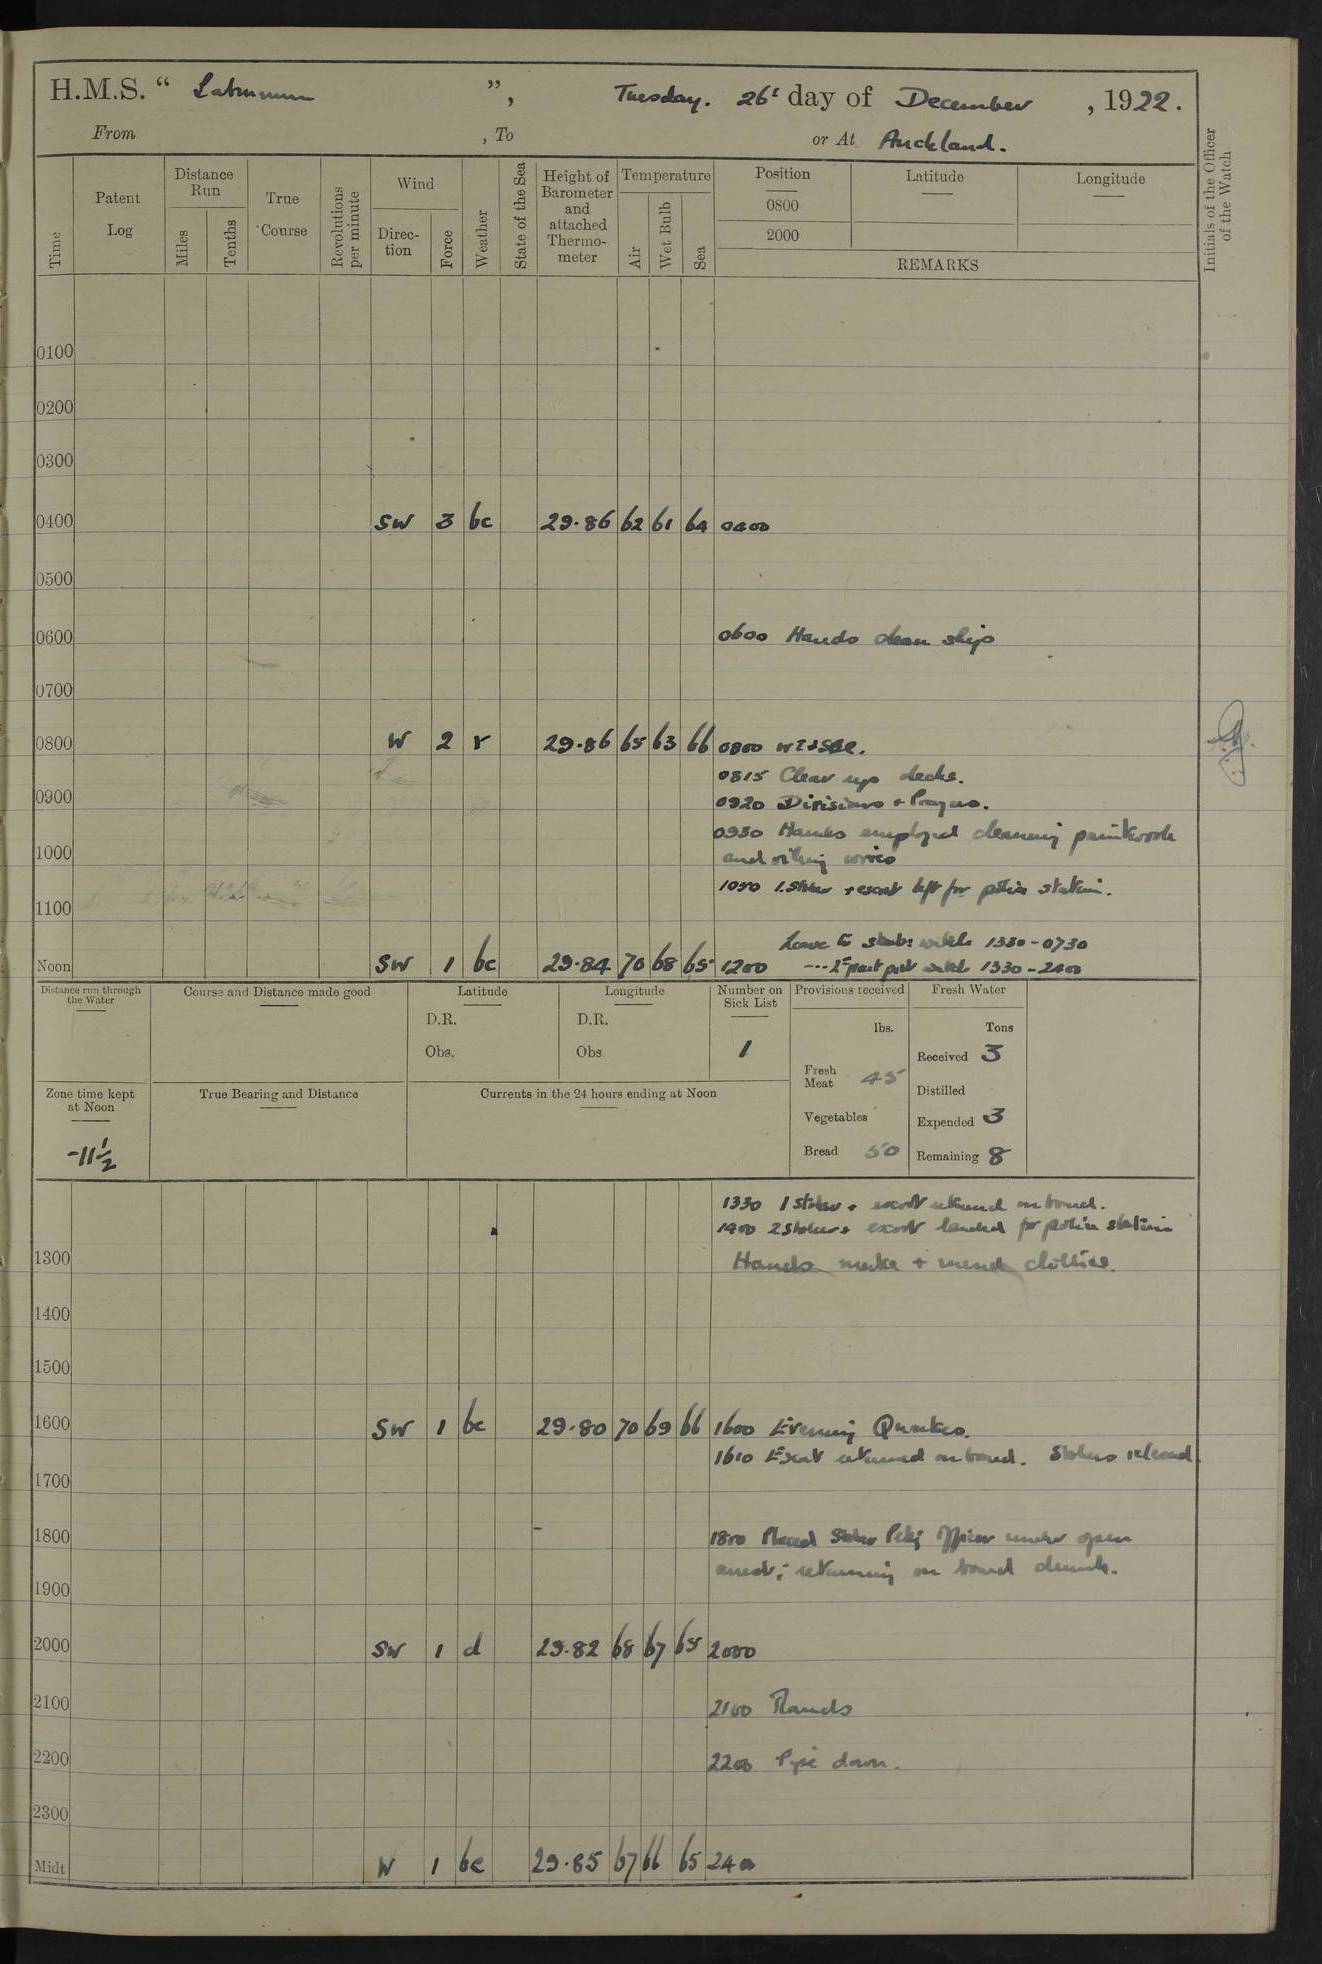 H.M.S. " Laburnum ", Tuesday. 26t day of December , 1922.
From , To or At Auckland.
Time
Patent Log
Distance Run
Miles
Tenths
True Course
Revolutions per minute
Wind
Direc-tion
Force
Weather
State of the Sea
Height of Barometer and attached Thermo-meter
Temperature
Air
Wet Bulb
Sea
Position
0800
2000
Latitude
Longitude
REMARKS
Initials of the Officer of the Watch
0100
0200
0300
0400 SW 3 bc 29.86 62 61 64 0400
0500
0600 0600 Hands clean ship
0700
0800 W 2 r 29.86 65 63 66 0800
0815 Clear up decks.
0900 0920 Divisions + Prayers.
0930 Hands employed cleaning paintwork
1000 and oiling wires
1050 1 Stoker + escort left for police station.
1100
Leave to Starbd watch 1330-0730
Noon SW 1 bc 29.84 70 68 65 1200 --- 1st part port watch 1330-2400
Distance run through the Water
Course and Distance made good
Latitude
D.R.
Obs.
Longitude
D.R.
Obs
Number on Sick List
1
Provisions received
lbs.
Fresh Meat 45
Vegetables
Bread 50
Fresh Water
Tons
Received 3
Distilled
Expended 3
Remaining 8
Zone time kept at Noon
-11½
True Bearing and Distance
Currents in the 24 hours ending at Noon
1330 1 Stoker + escort returned on board.
1400 2 Stokers + escort landed for police station
1300 Hands make + mend clothes.
1400
1500
1600 SW 1 bc 29.80 70 69 66 1600 Evening Quarters.
1610 Escort returned on board. Stokers released
1700
1800 1800 Placed Stoker Petty Officer under open
arrest; returning on board drunk.
1900
2000 SW 1 d 29.82 68 67 65 2000
2100 2100 Rounds
2200 2200 Pipe down.
2300
Midt W 1 bc 29.85 67 66 65 2400